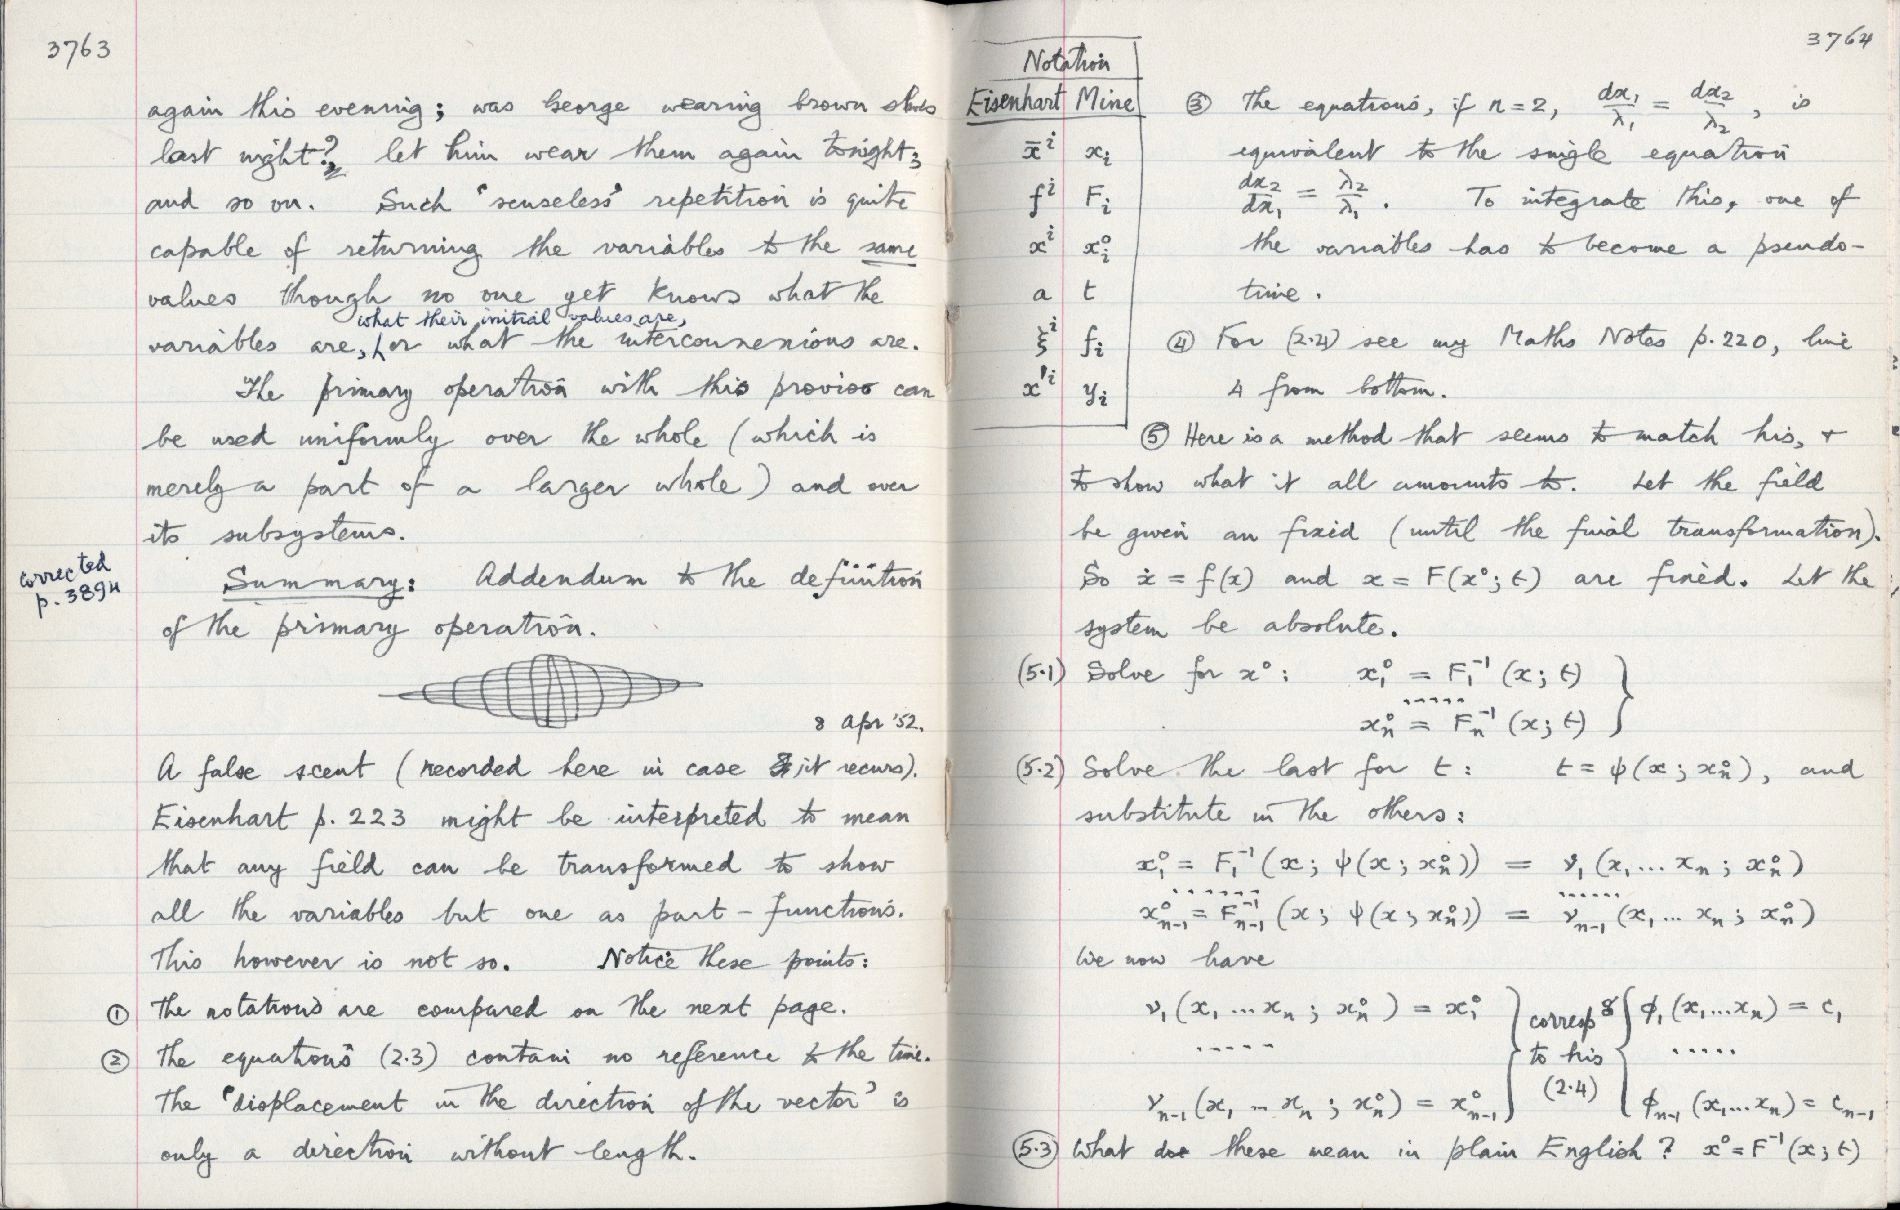 3763
again this evening; was George wearing brown shoes
last night? let him wear them again tonight;
and so on. Such 'senseless' repetition is quite
capable of returning the variables to the same
values though no one yet knows what the
what their initial values are,
variables are, or what the interconnexions are.
The primary operation with this proviso can
be used uniformly over the whole (which is
merely a part of a larger whole) and over
its subsystems.
corrected
p. 3894
Summary: Addendum to the definition
of the primary operation.
8 Apr '52.
A false scent (recorded here in case it recurs).
Eisenhart p. 223 might be interpreted to mean
that any field can be transformed to show
all the variables but one as part-functions.
This however is not so. Notice these points:
① The notations are compared on the next page.
② The equations (2.3) contain no reference to the time.
The 'displacement in the direction of the vector' is
only a direction without length.
3764
Notation
Eisenhart Mine
x̄ⁱ xᵢ
fⁱ Fᵢ
xⁱ xᵢ⁰
a t
ξⁱ fᵢ
x'ⁱ yᵢ
③ The equations, if n=2, dx₁/λ₁ = dx₂/λ₂, is
equivalent to the single equation
dx₂/dx₁ = λ₂/λ₁. To integrate this, one of
the variables has to become a pseudo-
time.
④ For (2.4) see my Maths Notes p. 220, line
4 from bottom.
⑤ Here is a method that seems to match his, +
to show what it all amounts to. Let the field
be given and fixed (until the final transformation).
So ẋ = f(x) and x = F(x⁰; t) are fixed. Let the
system be absolute.
(5.1) Solve for x⁰: x₁⁰ = F₁⁻¹(x; t)
.....
xₙ⁰ = Fₙ⁻¹(x; t) }
(5.2) Solve the last for t: t = ψ(x; xₙ⁰), and
substitute in the others:
x₁⁰ = F₁⁻¹(x; ψ(x; xₙ⁰)) = ν₁(x₁...xₙ; xₙ⁰)
...... ......
xₙ₋₁⁰ = Fₙ₋₁⁻¹(x; ψ(x; xₙ⁰)) = νₙ₋₁(x₁...xₙ; xₙ⁰)
We now have
ν₁(x₁...xₙ; xₙ⁰) = x₁⁰ } corresp { φ₁(x₁...xₙ) = c₁
..... to his .....
(2.4)
νₙ₋₁(x₁...xₙ; xₙ⁰) = xₙ₋₁⁰ φₙ₋₁(x₁...xₙ) = cₙ₋₁
(5.3) What do these mean in plain English? x⁰ = F⁻¹(x; t)